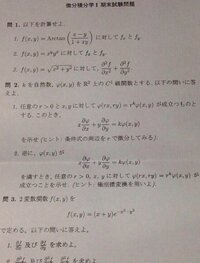 微分積分学 I 期末試験問題
問 1. 以下を計算せよ.
1. f(x, y) = Arctan((x − y)/(1 + xy)) に対して f_x と f_y.
2. f(x, y) = x^y y^x に対して f_x と f_y.
3. f(x, y) = √(x² + y²) に対して ∂²f/∂x² + ∂²f/∂y²
問 2. k を自然数, φ(x, y) を ℝ² 上の C¹ 級関数とする. 以下の問いに答えよ.
1. 任意の r > 0 と x, y に対して φ(rx, ry) = r^k φ(x, y) が成立つものとする. このとき,
x ∂φ/∂x + y ∂φ/∂y = kφ(x, y)
を示せ (ヒント: 条件式の両辺を r で微分してみる).
2. 逆に, φ(x, y) が
x ∂φ/∂x + y ∂φ/∂y = kφ(x, y)
を満すとき, 任意の r > 0, x, y に対して φ(rx, ry) = r^k φ(x, y) が
成立つことを示せ. (ヒント: 極座標変換を用いよ).
問 3. 2 変数関数 f(x, y) を
f(x, y) = (x + y)e^{−x²−y²}
で定める. 以下の問いに答えよ.
1. ∂f/∂x 及び ∂f/∂y を求めよ.